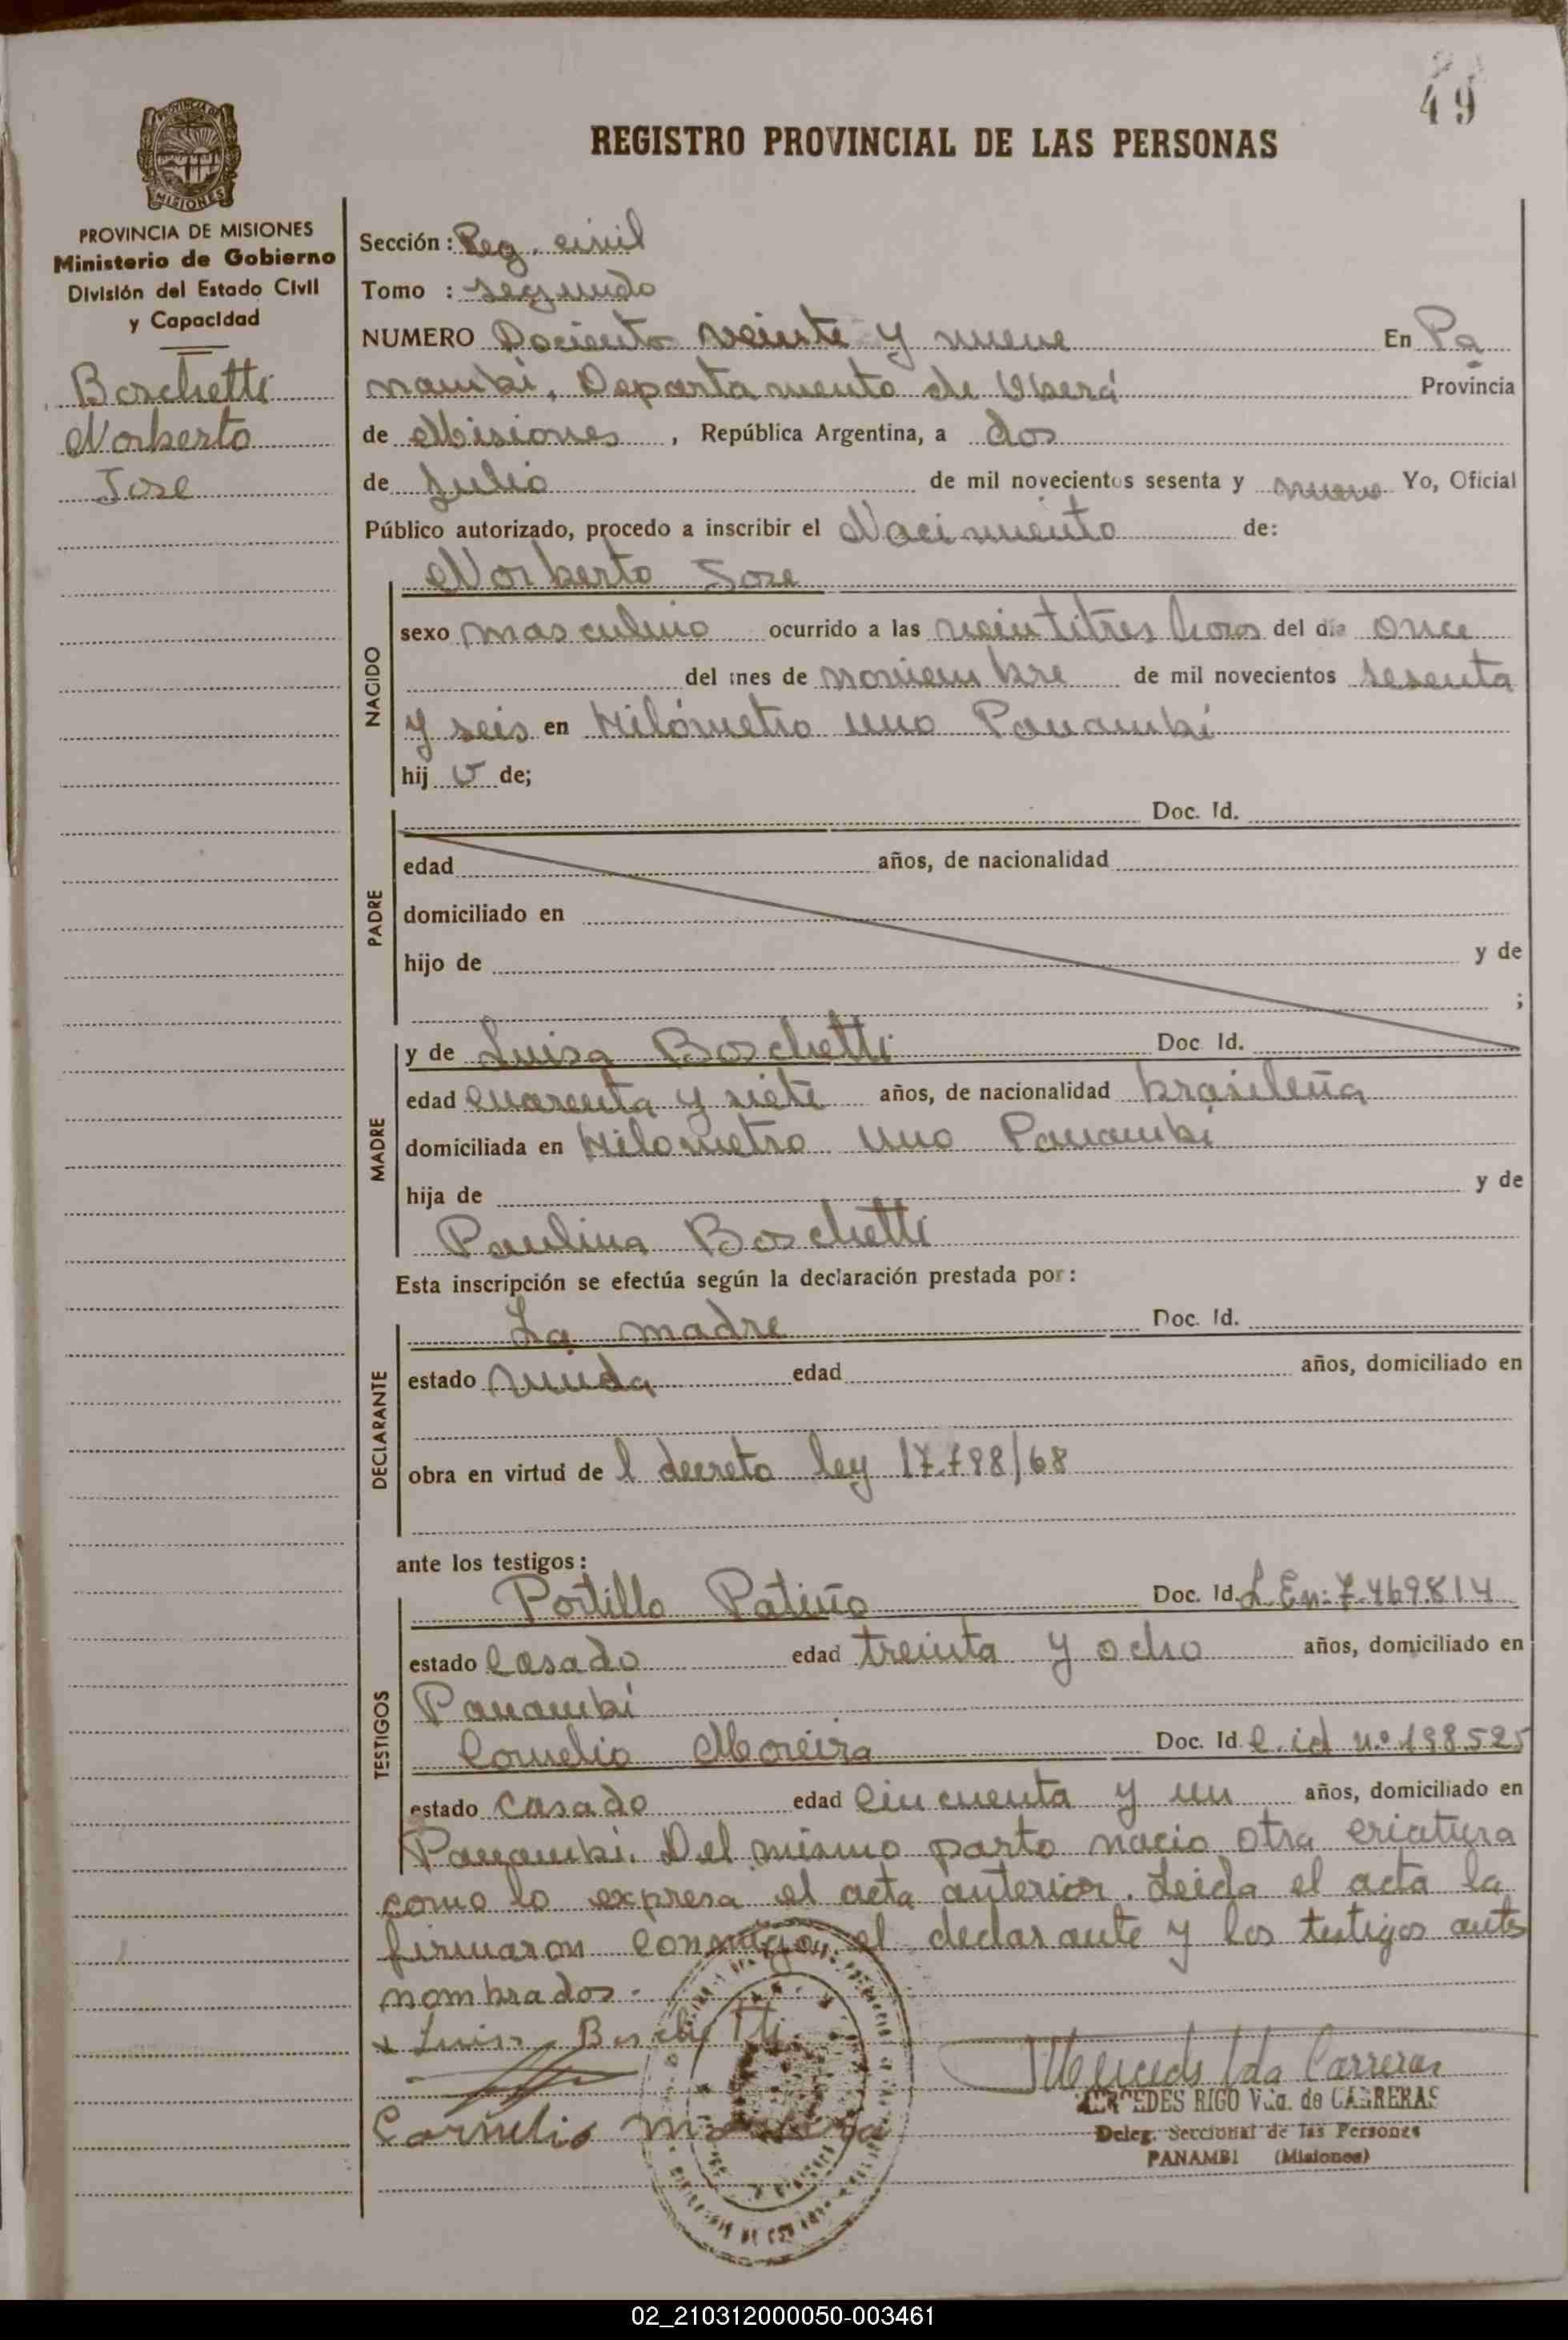 49
REGISTRO PROVINCIAL DE LAS PERSONAS
PROVINCIA DE MISIONES
Ministerio de Gobierno
División del Estado Civil
y Capacidad
Boschetti
Norberto
Jose
Sección: Reg. civil
Tomo : segundo
NUMERO Dociento veinte y nueve En Pa
nambí, Departamento de Oberá Provincia
de Misiones, República Argentina, a dos
de Julio de mil novecientos sesenta y nueve Yo, Oficial
Público autorizado, procedo a inscribir el Nacimiento de:
Norberto Jose
NACIDO
sexo masculino ocurrido a las veintitres horas del día once
del mes de noviembre de mil novecientos sesenta
y seis en Kilómetro uno Panambí
hij o de;
PADRE
Doc. Id.
edad años, de nacionalidad
domiciliado en
hijo de y de
;
MADRE
y de Luisa Boschetti Doc Id.
edad cuarenta y siete años, de nacionalidad brasileña
domiciliada en Kilometro uno Panambí
hija de y de
Paulina Boschetti
Esta inscripción se efectúa según la declaración prestada por:
DECLARANTE
La madre Doc. Id.
estado viuda edad años, domiciliado en
obra en virtud de l decreto ley 17.798/68
ante los testigos:
TESTIGOS
Portillo Patiño Doc. Id. L.En: 7.469.814
estado casado edad treinta y ocho años, domiciliado en
Panambí
Cornelio Moreira Doc. Id. C.id nº 198.525
estado casado edad cincuenta y un años, domiciliado en
Panambí. Del mismo parto nacio otra criatura
como lo expresa el acta anterior. Leida el acta la
firmaron conmigo, el declarante y los testigos antes
nombrados.-
x Luisa Boschetti
Mercedes Vda Carreras
MERCEDES RIGO Vda. de CARRERAS
Cornelio Moreira
Deleg. Seccional de las Personas
PANAMBI (Misiones)
02_210312000050-003461